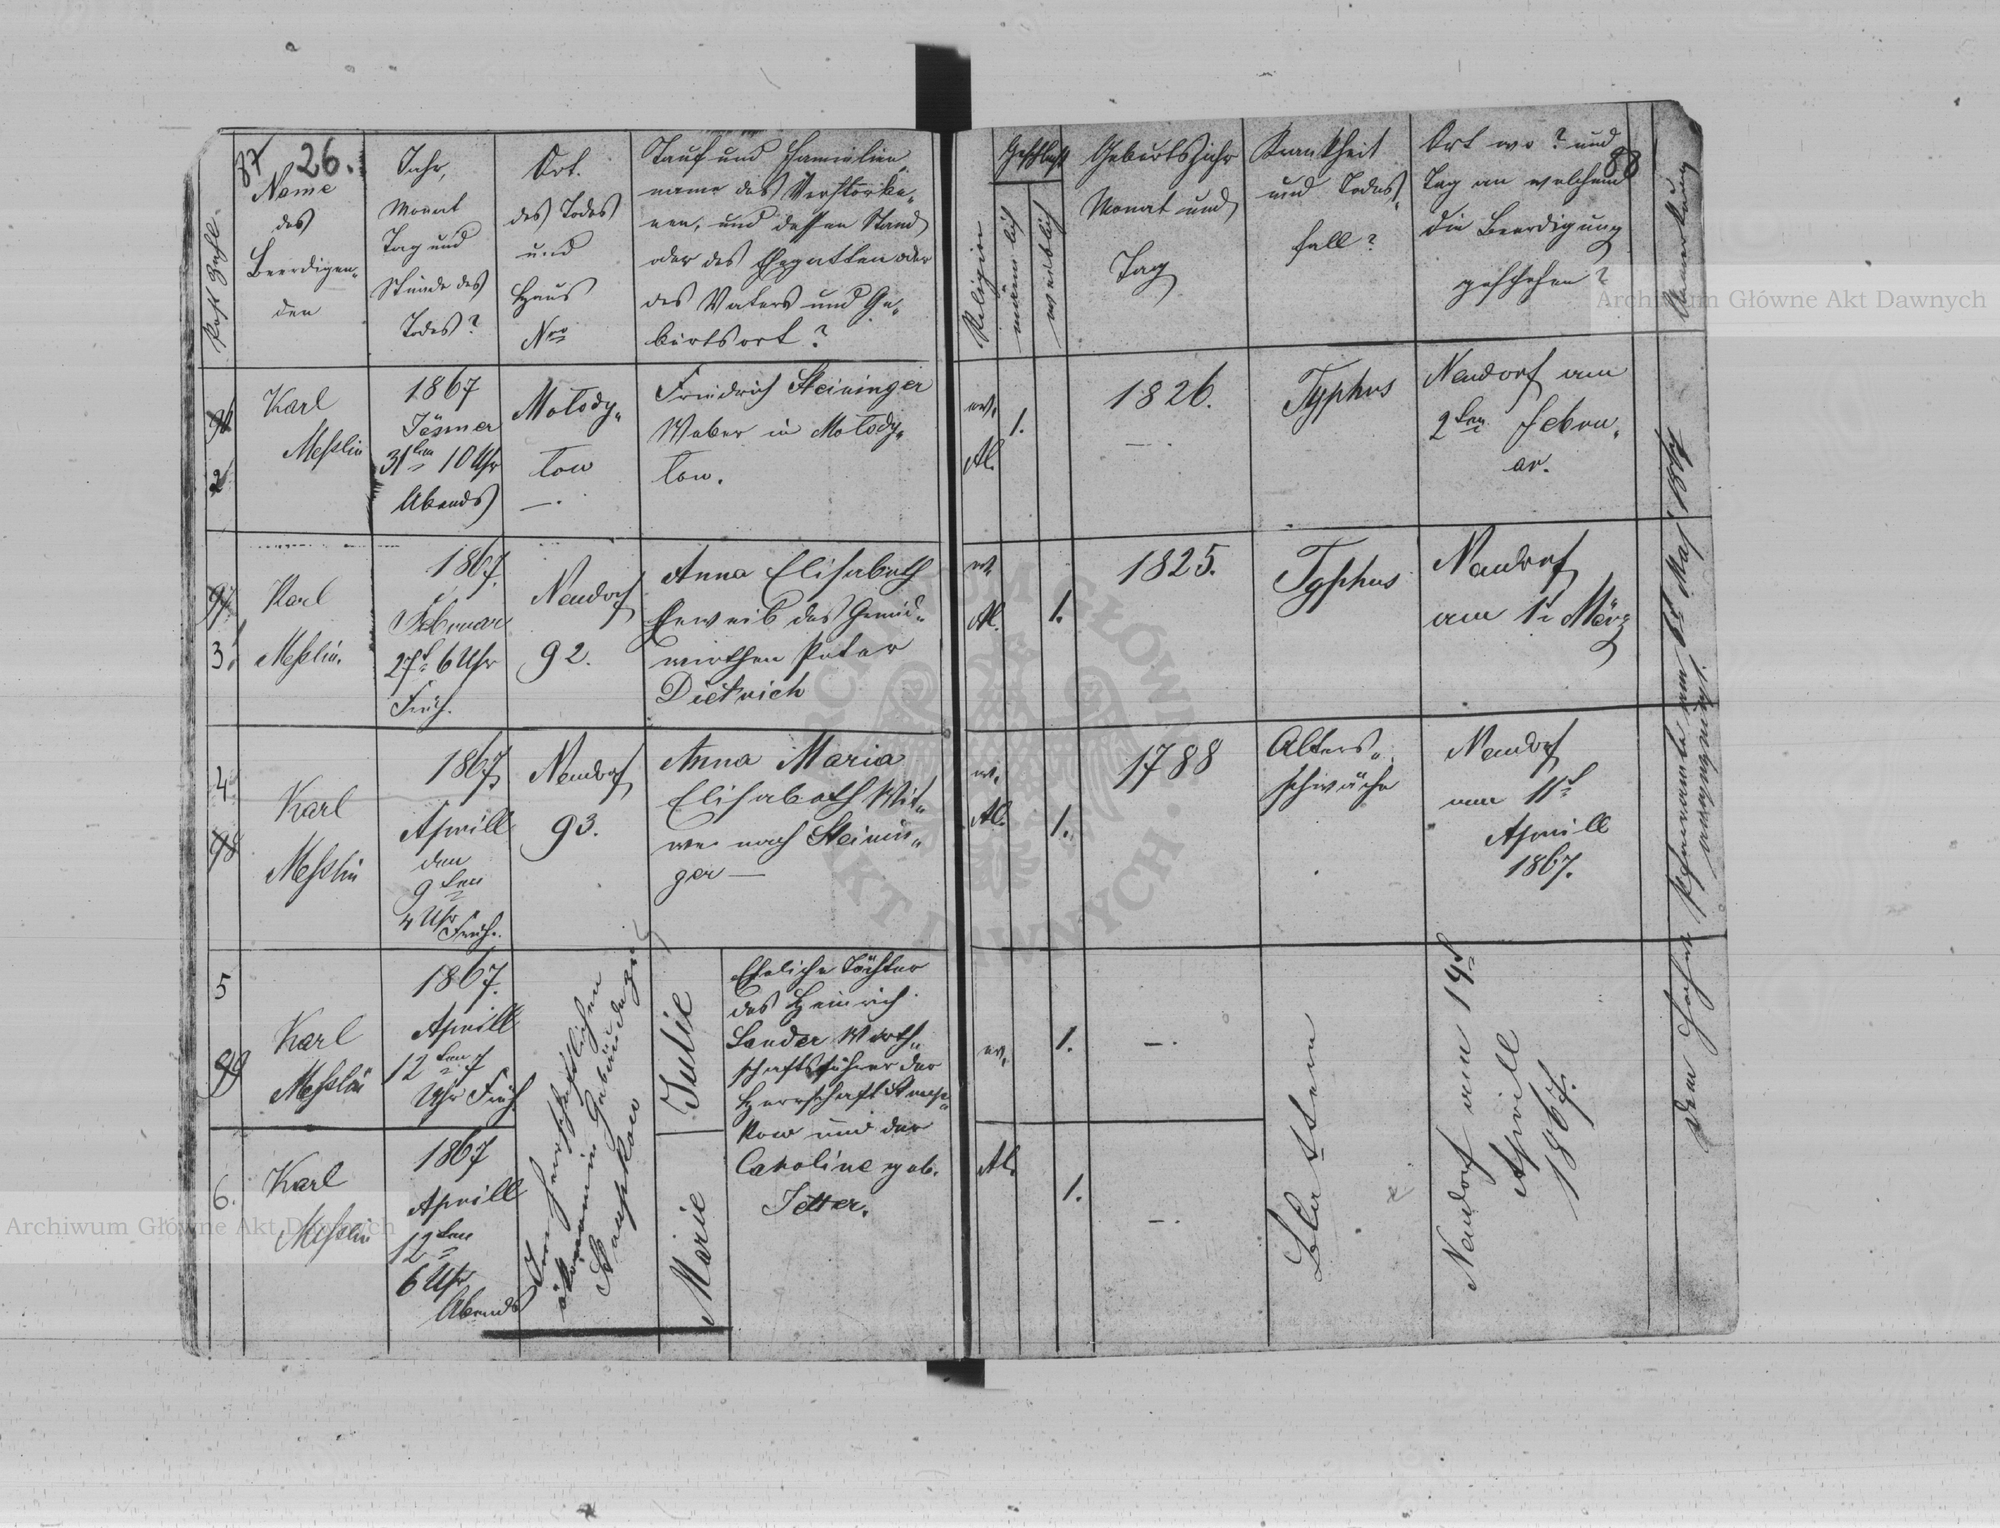 87
26.
Post Zahl.
Name
des
Beerdigen-
den
Jahr,
Monat
Tag und
Stunde des
Todes?
Ort.
des Todes
und
Haus
Nro
Tauf und Familien-
name des Verstorbe-
nen, und dessen Stand
oder des Ehegatten oder
des Vaters und Ge-
burtsort?
Religion
Geschlecht
männlich
weiblich
Geburtsjahr
Monat und
Tag
Krankheit
und Todes-
fall?
Ort wo? und
88
Tag an welchem
die Beerdigung
geschehen?
Anmerkung
2
Karl
Messlin
1867
Jänner
31ten 10 Uhr
Abends
Mołody-
tow
Friedrich Steininger
Weber in Mołody-
tow.
ev.
Al.
1.
1826.
Typhus
Neudorf am
2ten Febru-
ar.
97
3
Karl
Messlin.
1867.
Februar
27t 6 Uhr
Früh.
Neudorf
92.
Anna Elisabeth
Eheweib des Grund-
wirthen Peter
Dietrich
ev.
Al.
1.
1825.
Typhus
Neudorf
am 1t März
4
98
Karl
Messlin
1867
Aprill
den
9ten
4 Uhr
Früh.
Neudorf
93.
Anna Maria
Elisabeth Wit-
we nach Steinin-
ger
ev.
Al.
1.
1788
Alters-
schwäche
Neudorf
am 11t
Aprill
1867.
5
99
Karl
Messlin
1867.
Aprill
12ten 7
Uhr Früh
Im herrschaftlichen
ökonomin Gebäude zu
Kaspkow
Julie
Eheliche Töchter
des Heinrich
Lander Wirth-
schaftsführer der
Herrschaft
kow und der
Caroline geb.
Jetter.
ev.
1.
Neudorf am 14t
Aprill
1867.
6.
Karl
Messlin
1867
Aprill
12ten
6 Uhr
Abends
Marie
Al.
1.
Dem hohen Ehrenamte am Mai 1867
Archiwum Główne Akt Dawnych
Archiwum Główne Akt Dawnych
ARCHIWUM GŁÓWNE AKT DAWNYCH